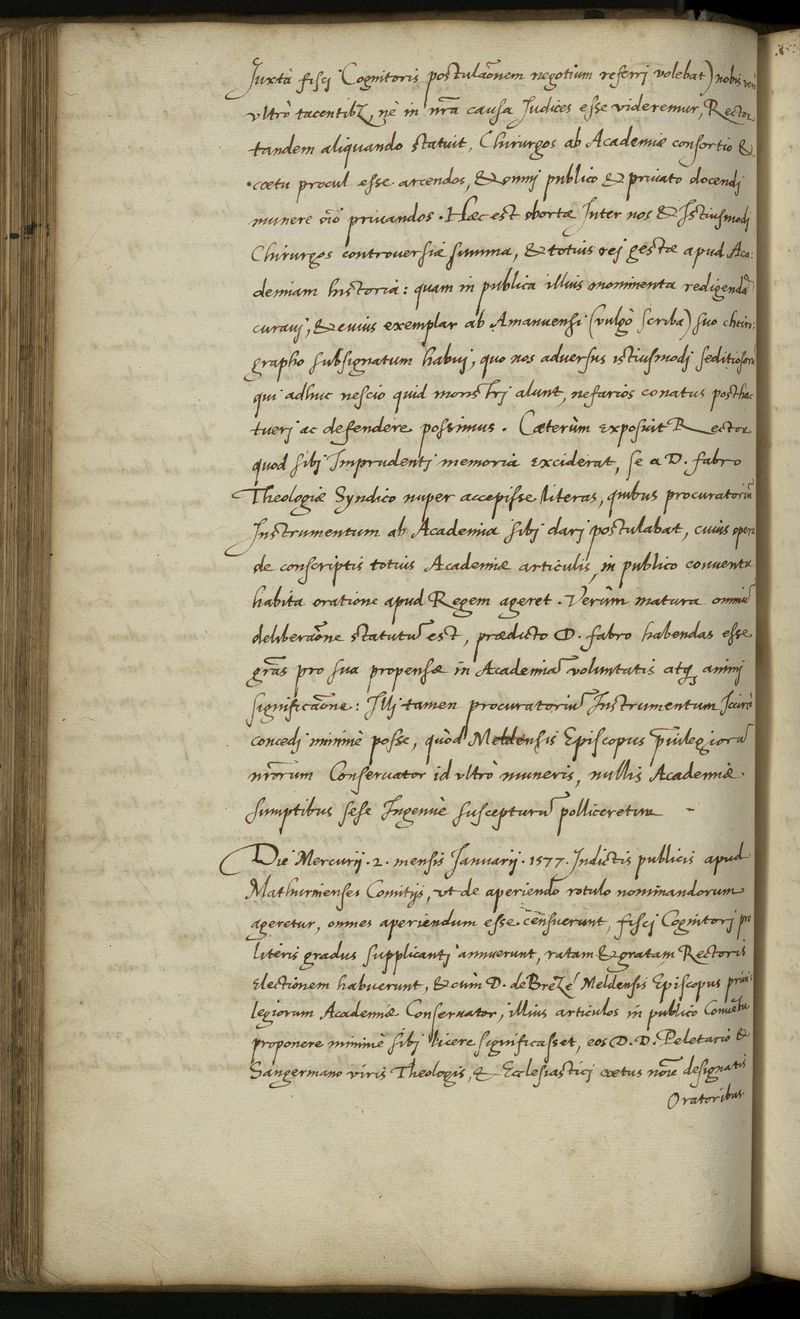 Juxtà fisci Cognitoris postulaõnem negotium referri volebat) nobis verò
vltrò tacentibz, nè in nr̃a causa Iudices esse videremur, Rector
tandem aliquando statuit, Chirurgos ab Academiæ consortio &
cœtu procul esse arcendos, & omni publico & priuato docendi
munere oĩo priuandos. Hæc est obortæ Inter nos & Istiusmodi
Chirurgos controuersiæ summa, & totius rej gestæ apud Aca:
demiam historia: quam in publica illius monimenta redigendã
curaui, & cuius exemplar ab Amanuensi (vulgò scriba) suo chiro:
grapho subsignatum habui, quo nos aduersus istiusmodi seditiosorũ
qui adhuc nescio quid monstri alunt, nefarios conatus posthac
tueri ac defendere possimus. Cæterùm exposuit Rector
quod sibi Imprudenti memoria exciderat, se a D. fabro
Theologiæ Syndico nuper accepisse literas, quibus procuratoriũ
Instrumentum ab Academia sibi dari postulabat, cuius opera
de conscriptis totius Academiæ articulis, in publico conuentu
habita oratione apud Regem ageret. Verùm matura omniũ
deliberaõne statutũ est, prædicto D. fabro habendas esse
grãs pro sua propensæ in Academiã voluntatis atq, animi
significaõne: Illi tamen procuratoriũ Instrumentum
concedi minimè posse, quòd Meldensis Episcopus p̃uilegiorũ
nr̃orum Conseruator id vltrò muneris, nullis Academiæ
sumptibus sese Ingenuè suscepturũ polliceretur -
Die Mercurij. 2. mensis Ianuarij. 1577. Indictis publicis apud
Mathurinenses Comitijs, vt de aperiendo rotulo nominandorum
ageretur, omnes aperiendum esse censuerunt, fisci Cognitori pro
literis gradus supplicanti annuerunt, ratam & gratam Rectoris
electionem habuerunt, & cùm D. de Brezé Meldensis Episcopus priui:
legiorum Academiæ Conseruator, illius articulos in publico Conuẽtu
proponere minimè sibi licere significasset, eos D. D. Peletario &
Sangermano viris Theologis, & Ecclesiastici cœtus nõie designatis
Oratoribus